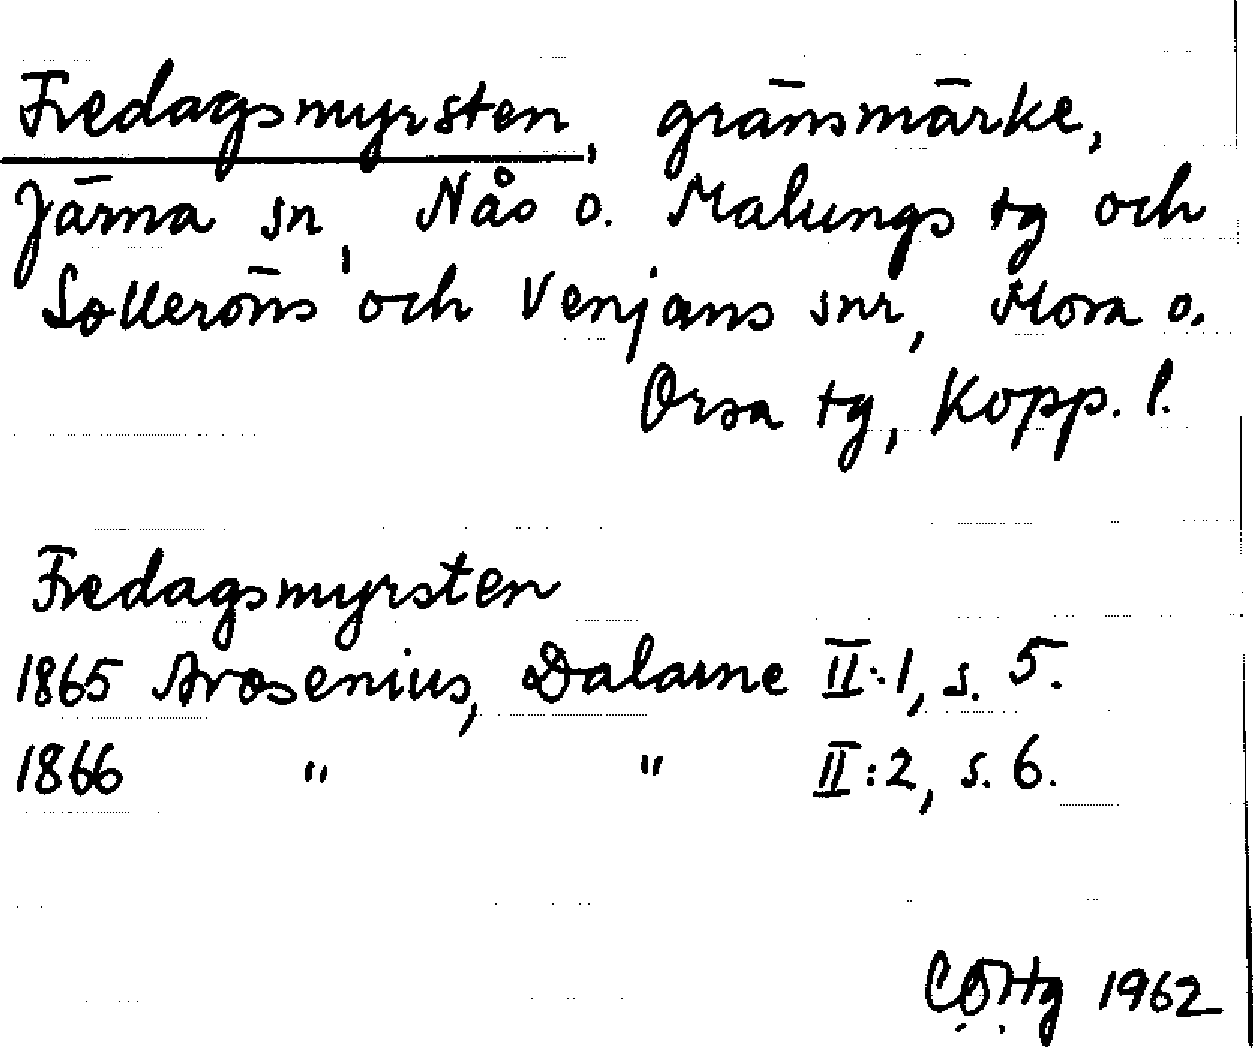 Fredagsmyrsten, gränsmärke,
Järna sn, Nås o. Malungs tg och
Solleröns och Venjans snr, Mora o.
Orsa tg, Kopp. l.
Fredagsmyrsten
1865 Arosenius, Dalarne II:1, s. 5.
1866 " " II:2, s. 6.
1962